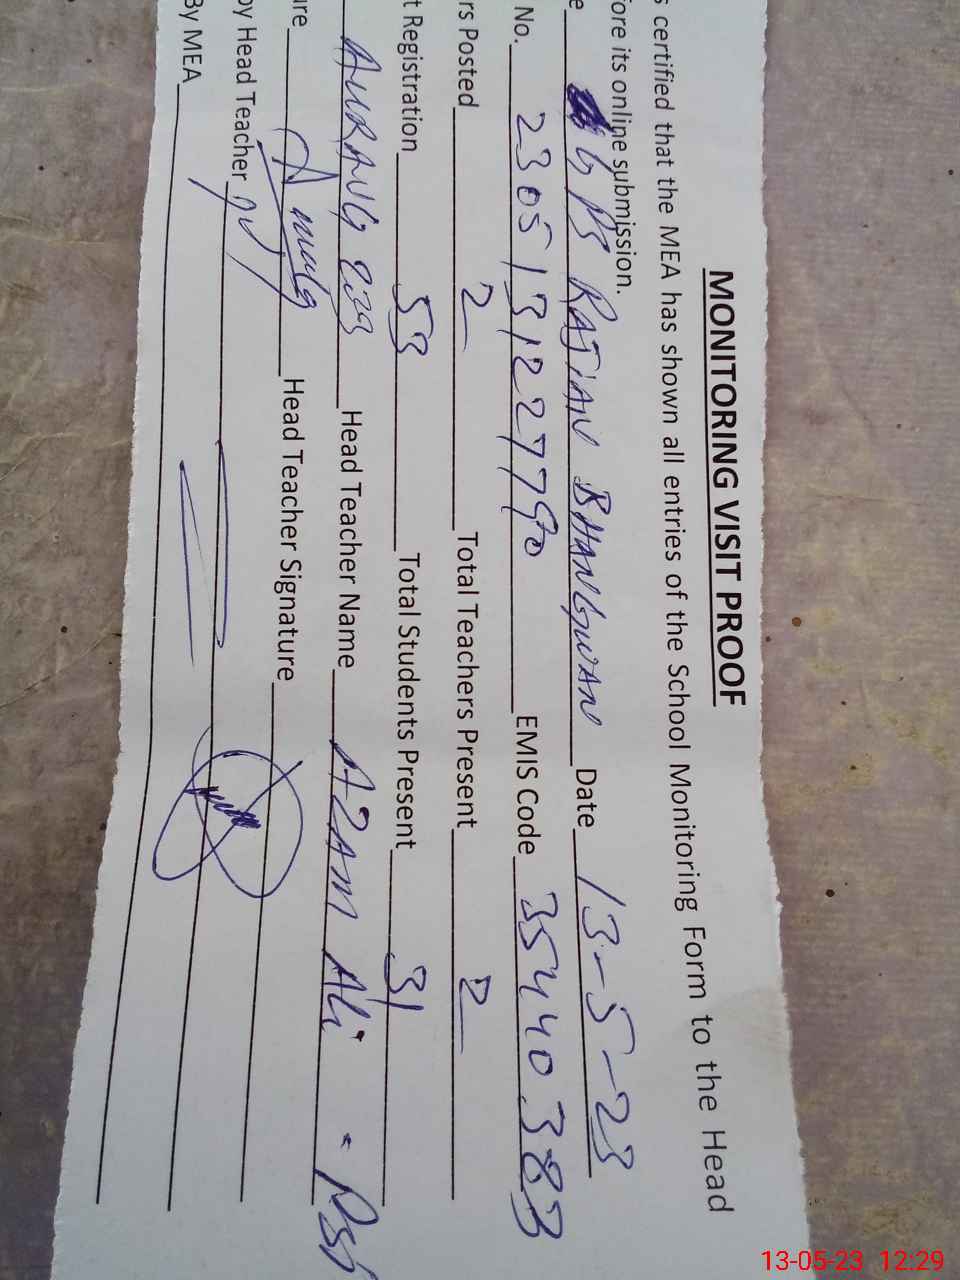 MONITORING VISIT PROOF
certified that the MEA has shown all entries of the School Monitoring Form to the Head
ore its online submission.
e GPS RAJIAN BHANGWAN Date 13-5-23
No. 2305131227790 EMIS Code 35440383
rs Posted 2 Total Teachers Present 2
t Registration 53 Total Students Present 31
AURANG Head Teacher Name AZAM Ali - PST
ure Head Teacher Signature
by Head Teacher
By MEA
13-05-23 12:29